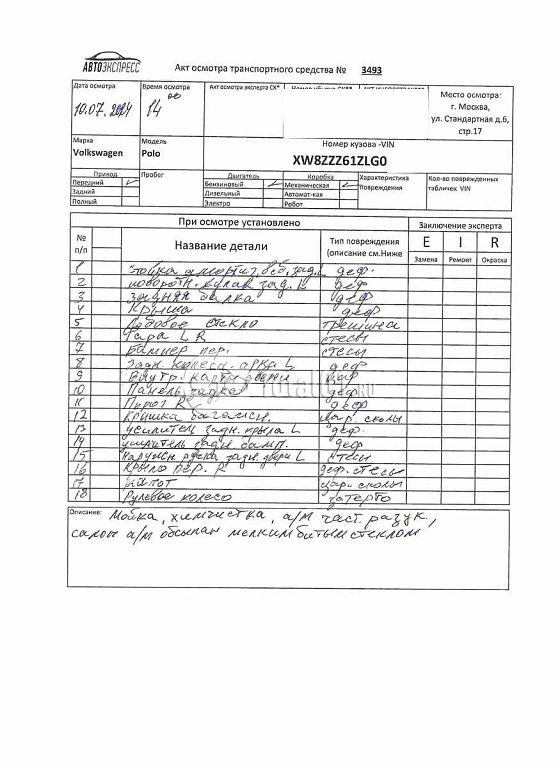 АВТОЭКСПРЕСС
Акт осмотра транспортного средства № 3493
Дата осмотра
10.07.2024
Время осмотра
14 00
Акт осмотра эксперта СК*
Место осмотра:
г. Москва,
ул. Стандартная д.6,
стр.17
Марка
Volkswagen
Модель
Polo
Номер кузова -VIN
XW8ZZZ61ZLG0
Привод
Передний
Задний
Полный
Пробег
Двигатель
Бензиновый
Дизельный
Электро
Коробка
Механическая
Автомат-кая
Робот
Характеристика
Повреждения
Кол-во поврежденных
табличек VIN
При осмотре установлено
Заключение эксперта
№
п/п
Название детали
Тип повреждения
(описание см.Ниже
E I R
Замена Ремонт Окраска
1 Стойка амортиз. зад. L деф.
2 поворотн. кулак зад. L деф
3 задняя балка деф
4 Крыша деф
5 Лобовое стекло трещина
6 Фара L R стесы
7 Бампер пер. стесы
8 Задн. колесн. арка L деф
9 Внутр. карта двери цар
10 Панель задка деф
11 Порог R деф
12 Крышка багажн. цар. сколы
13 усилитель задн. крыла L деф.
14 усилитель задн. бамп. деф
15 Наружн. ручка задн. двери L стесы
16 Крыло пер. R деф. стесы
17 Капот цар. сколы
18 Рулевое колесо затерто
Описание: Мойка, химчистка, а/м част. разук.,
салон а/м обсыпан мелким битым стеклом